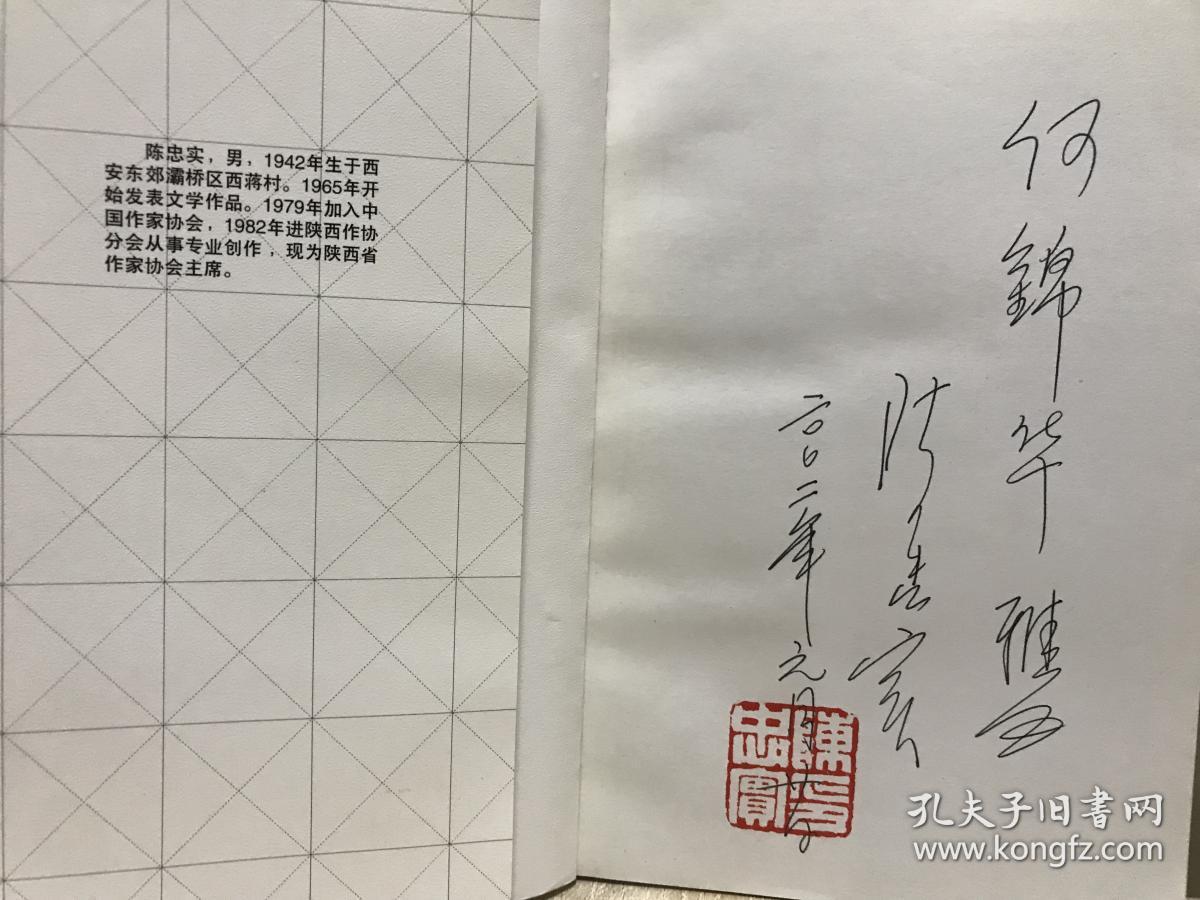 陈忠实，男，1942年生于西
安东郊灞桥区西蒋村。1965年开
始发表文学作品。1979年加入中
国作家协会，1982年进陕西作协
分会从事专业创作，现为陕西省
作家协会主席。
何錦华雅正
陈忠实
二〇〇二年元月
陳忠實
孔夫子旧书网
www.kongfz.com